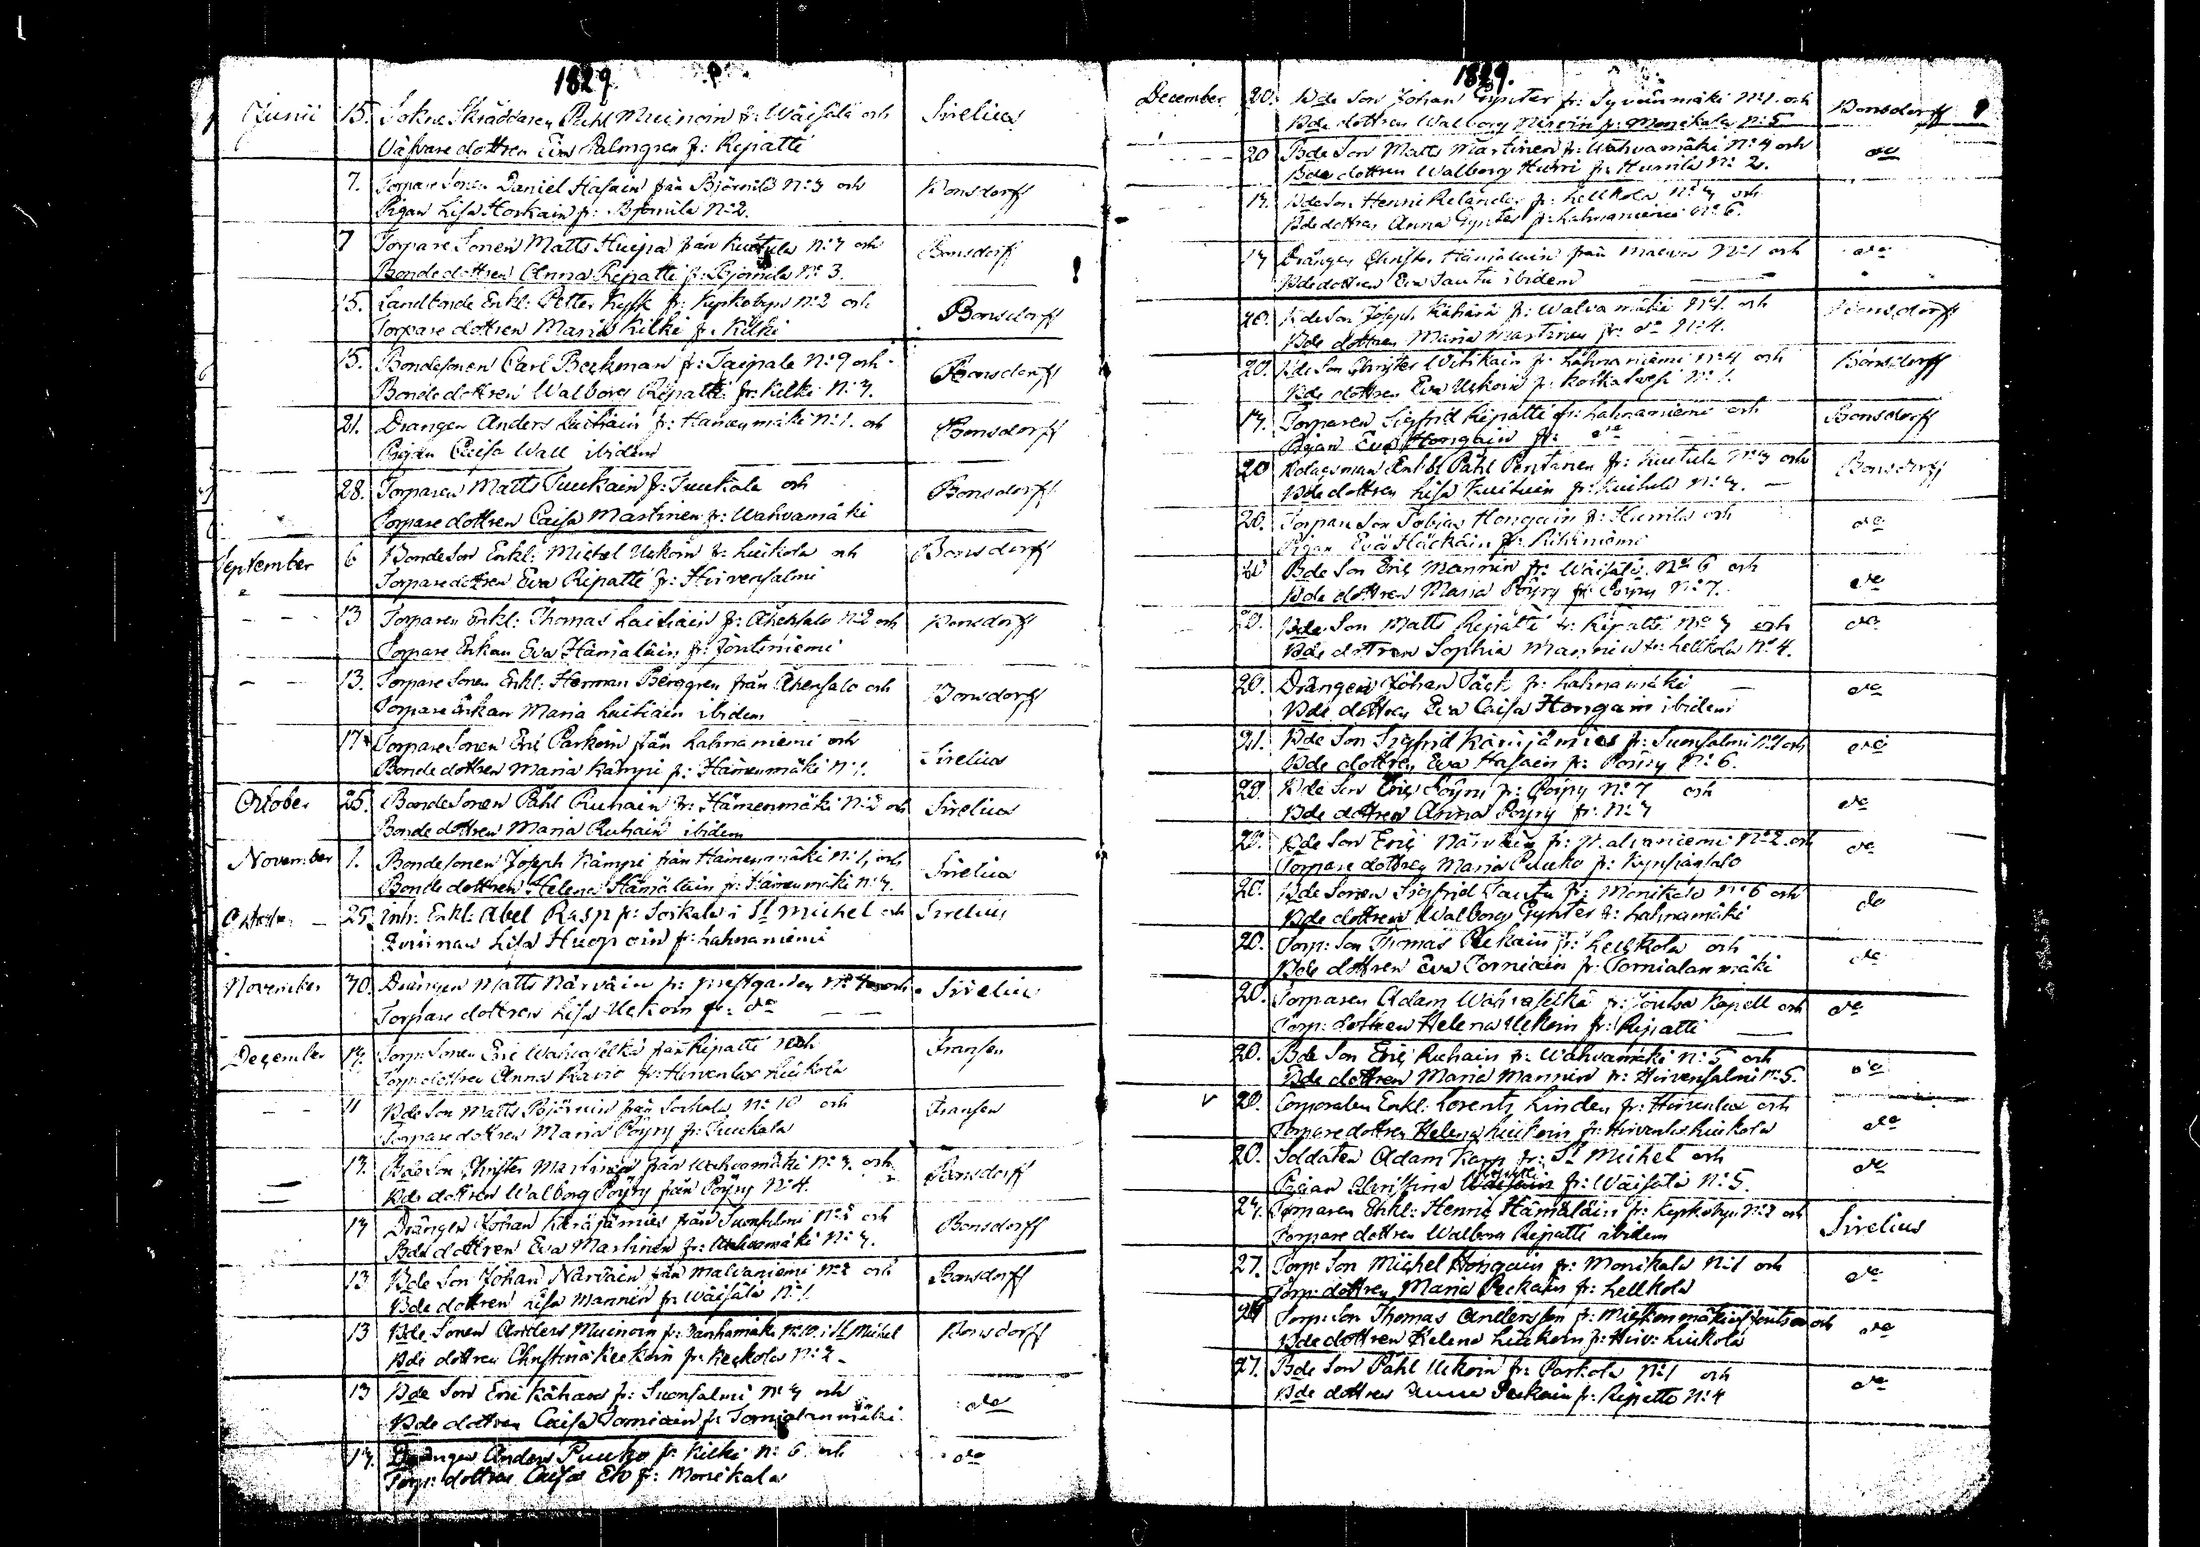 1829.
Junii 15. Sokne Skräddaren Påhl Muinoin fr: Wäisälä och Sirelius
Väfvare dottren Eva Palmgren fr: Ripatti
7. Torpare Sonen Daniel Hasain från Björnilä N:o 3 och Bonsdorff
Pigan Lisa Hoskain fr: Björnilä N:o 2.
7 Torpare Sonen Matts från Kuitula N:o 7 och Bonsdorff
Bonde dottren Anna Ripatti fr: Björnilä N:o 3.
15. Landbonde Enkl: Petter Kyck fr: Kyrkobyn N:o 2 och Bonsdorff
Torpare dottren Maria Kilki fr: Kilki
15. Bondesonen Carl Beckman fr: Taipale N:o 9 och Bonsdorff
Bonde dottren Walborg Ripatti fr: Kilki N:o 7.
21. Drängen Anders Luikiain fr: Hämenmäki N:o 1. och Bonsdorff
Pigan Caisa Wall ibidem
28. Torparen Matts Tuukain fr: Tuukala och Bonsdorff
Torpare dottren Caisa Martinen fr: Wahvamäki
September 6 Bonde Son Enkl: Michel Uekoin fr: Luikola och Bonsdorff
Torpare dottren Eva Ripatti fr: Hirvensalmi
13 Torparen Enkl: Thomas Laitiain fr: Ahensalo N:o 2 och Bonsdorff
Torpare Enkan Eva Hämäläin fr: Joutiniemi
13. Torpare Sonen Enkl: Herman Berggren från Ahensalo och Bonsdorff
Torpare änkan Maria Luitiain ibidem
17 Torpare Sonen Eric Parkoin från Lahnaniemi och Sirelius
Bonde dottren Maria Kämpi fr: Hämenmäki N:o 1.
October 25. Bonde Sonen Påhl Ruhain fr: Hämenmäki N:o 2 och Sirelius
Bonde dottren Maria Ruhain ibidem
November 1. Bondesonen Joseph Kämpi från Hämenmäki N:o 1, och Sirelius
Bonde dottren Helena Hämäläin fr: Hämenmäki N:o 7.
October 25. Inh: Enkl: Abel Rasp fr: Soikala i S:t Michel och Sirelius
Qvinnan Lisa fr: Lahnaniemi
November 30. Drängen Matts Närväin fr: Prestgården N:o 4 och Sirelius
Torpare dottren Lisa Uekoin fr: d:o
December 17. Torp: Sonen Eric Wahvaselkä från Ripatti och Fransen
Torp: dottren Anna Ravio fr: Hirvenlax Luikola
11 Bde Son Matts Björnin från Soikala N:o 10 och Fransen
Torpare dottren Maria Pöyry fr: Tuukala
13. Bde Son Christer Martinen från Wahvamäki N:o 7. och Bonsdorff
Bde dottren Walborg Pöyry från Pöyry N:o 4.
17 Drängen Johan Käräjämies från Suonsalmi N:o 5 och Bonsdorff
Bde dottren Eva Martinen fr: Wahvamäki N:o 7.
13 Bde Son Johan Närväin från Malvaniemi N:o 2 och Bonsdorff
Bde dottren Lisa Mannin fr: Wäisälä N:o 1.
13 Bde Sonen Anders Muinoin fr: Vanhamäki N:o 10 i S:t Michel Bonsdorff
Bde dottren Christina Keckoin fr: Keckola N:o 2
13 Bde Son Eric Kähäre fr: Suonsalmi N:o 7 och d:o
Bde dottren Caisa Torniain fr: Tornialanmäki
13. Drängen Anders Puuko fr: Kilki N:o 6 och d:o
Torp: dottren Caisa Elo fr: Monikala
1829.
December 20. Bde Son Johan Gynter fr: Syvänmäki N:o 1. och Bonsdorff
Bde dottren Walborg fr: Monikala N:o 5
20 Bde Son Matts Martinen fr: Wahvamäki N:o 4 och d:o
Bde dottren Walborg Hurri fr: Hurrila N:o 2.
17. Bde Son Henric Relander fr: Hellkola N:o 7 och
Bde dottren Anna Gynter fr: Lahnaniemi N:o 6.
17 Drängen Christer Hämäläin från N:o 1 och d:o
Bde dottren Eva Tantu ibidem
20. Bde Son Joseph Kähärä fr: Walvamäki N:o 1. och Bonsdorff
Bde dottren Maria Martinen fr: d:o N:o 4.
20. Bde Son Christer Witikain fr: Lahnaniemi N:o 4 och Bonsdorff
Bde dottren Eva Uekoin fr: N:o 1.
17. Torparen Sigfrid Ripatti fr: Lahnaniemi och Bonsdorff
Pigan Eva Hongain fr: d:o
20 Bolagsman Enkl: Påhl Pentanen fr: Kuitula N:o 3 och Bonsdorff
Bde dottren Lisa Kuituin fr: Kuitula N:o 7.
20. Torpare Son Tobias Hongain fr: Hurrila och d:o
Pigan Eva Häckäin fr: Kihkniemi
20 Bde Son Eric Mannin fr: Wäisälä N:o 6 och d:o
Bde dottren Maria Pöyry fr: Pöyry N:o 7.
20. Bde Son Matts Ripatti fr: Ripatti N:o 7 och d:o
Bde dottren Sophia Mannin fr: Hellkola N:o 4.
20. Drängen Johan Täck fr: Lahnamäki d:o
Bde dottren Eva Caisa Hongain ibidem
21. Bde Son Sigfrid Käräjämies fr: Suonsalmi N:o 1 och d:o
Bde dottren Eva Hasain fr: Pöyry N:o 6.
20. Bde Son Eric Pöyry fr: Pöyry N:o 7 och d:o
Bde dottren Anna Pöyry fr: N:o 7
20. Bde Son Eric Närväin fr: Malvaniemi N:o 2. och d:o
Torpare dottren Maria Puuko fr: Kynsiänsalo
20. Bde Sonen Sigfrid Tantu fr: Monikala N:o 6 och do
Bde dottren Walborg Gynter fr: Lahnamäki
20. Torp: Son Thomas Pekain fr: Hellkola och d:o
Bde dottren Eva Torniain fr: Tornialanmäki
20. Torparen Adam Wahvaselkä fr: Joutsa Kapell och d:o
Torp: dottren Helena Uekoin fr: Ripatti
20. Bde Son Eric Ruhain fr: Wahvamäki N:o 5 och d:o
Bde dottren Maria Mannin fr: Hirvensalmi N:o 5.
v 20. Corporalen Enkl: Lorentz Linden fr: Hirvenlax och d:o
Torpare dottren Helena Luikoin fr: Hirvenlax Luikola
20. Soldaten Adam Karp fr: S:t Michel och d:o
Pigan Christina fr: Wäisälä N:o 5.
27. Torparen Enkl: Henric Hämäläin fr: Kyrkobyn N:o 2 och Sirelius
Torpare dottren Walborg Ripatti ibidem
27. Torp: Son Michel Hongain fr: Monikala N:o 1 och d:o
Torp: dottren Maria Peckain fr: Hellkola
27 Torp: Son Thomas Andersson fr: i Joutsa och d:o
Bde dottren Helena Luikoin fr: Hirv: Luikola
27. Bde Son Påhl Uekoin fr: Parkola N:o 1 och d:o
Bde dottren Anna Peckain fr: Ripatti N:o 4